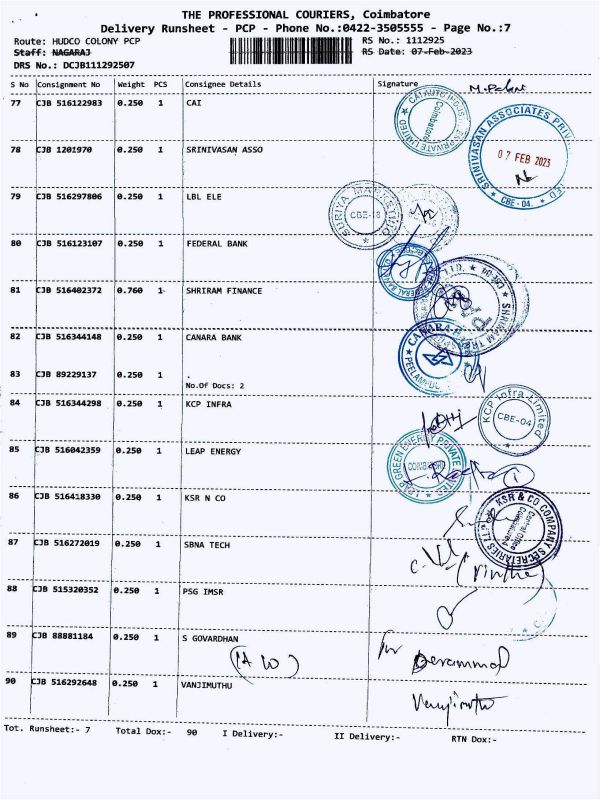 THE PROFESSIONAL COURIERS, Coimbatore
Delivery Runsheet - PCP - Phone No.:0422-3505555 - Page No.:7
Route: HUDCO COLONY PCP RS No.: 1112925
Staff: NAGARAJ RS Date: 07-Feb-2023
DRS No.: DCJB111292507
S No Consignment No Weight PCS Consignee Details Signature
77 CJB 516122983 0.250 1 CAI
78 CJB 1201970 0.250 1 SRINIVASAN ASSO
SRINIVASAN ASSOCIATES
07 FEB 2023
CBE-04.
79 CJB 516297806 0.250 1 LBL ELE
SURIYA MARKETING
CBE-18
80 CJB 516123107 0.250 1 FEDERAL BANK
81 CJB 516402372 0.760 1 SHRIRAM FINANCE
82 CJB 516344148 0.250 1 CANARA BANK
CANARA
83 CJB 89229137 0.250 1 .
No.Of Docs: 2
84 CJB 516344298 0.250 1 KCP INFRA
KCP Infra Limited
CBE-04
85 CJB 516042359 0.250 1 LEAP ENERGY
LEAP GREEN ENERGY PRIVATE LIMITED
COIMBATORE
86 CJB 516418330 0.250 1 KSR N CO
KSR & CO COMPANY SECRETARIES LLP
87 CJB 516272019 0.250 1 SBNA TECH
88 CJB 515320352 0.250 1 PSG IMSR
89 CJB 88881184 0.250 1 S GOVARDHAN
90 CJB 516292648 0.250 1 VANJIMUTHU
Tot. Runsheet:- 7 Total Dox:- 90 I Delivery:- II Delivery:- RTN Dox:-